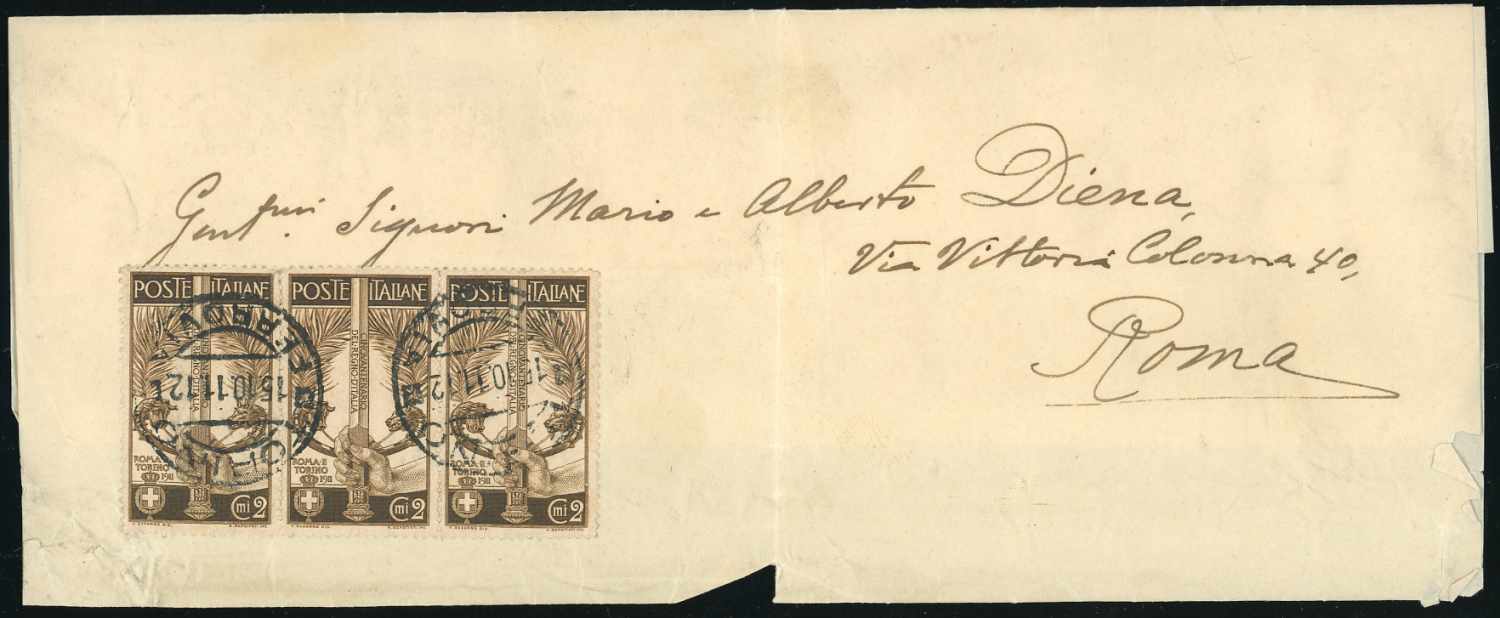 Gent.mi Signori Mario e Alberto Diena,
Via Vittoria Colonna 40,
Roma
POSTE ITALIANE
CINQVANTENARIO
DEL REGNO D'ITALIA
ROMA E
TORINO
1911
Cmi 2
POSTE ITALIANE
CINQVANTENARIO
DEL REGNO D'ITALIA
ROMA E
TORINO
1911
Cmi 2
POSTE ITALIANE
CINQVANTENARIO
DEL REGNO D'ITALIA
ROMA E
TORINO
1911
Cmi 2
TORINO
15.10.11.12
FERROVIA
TORINO
15.10.11.12
FERROVIA